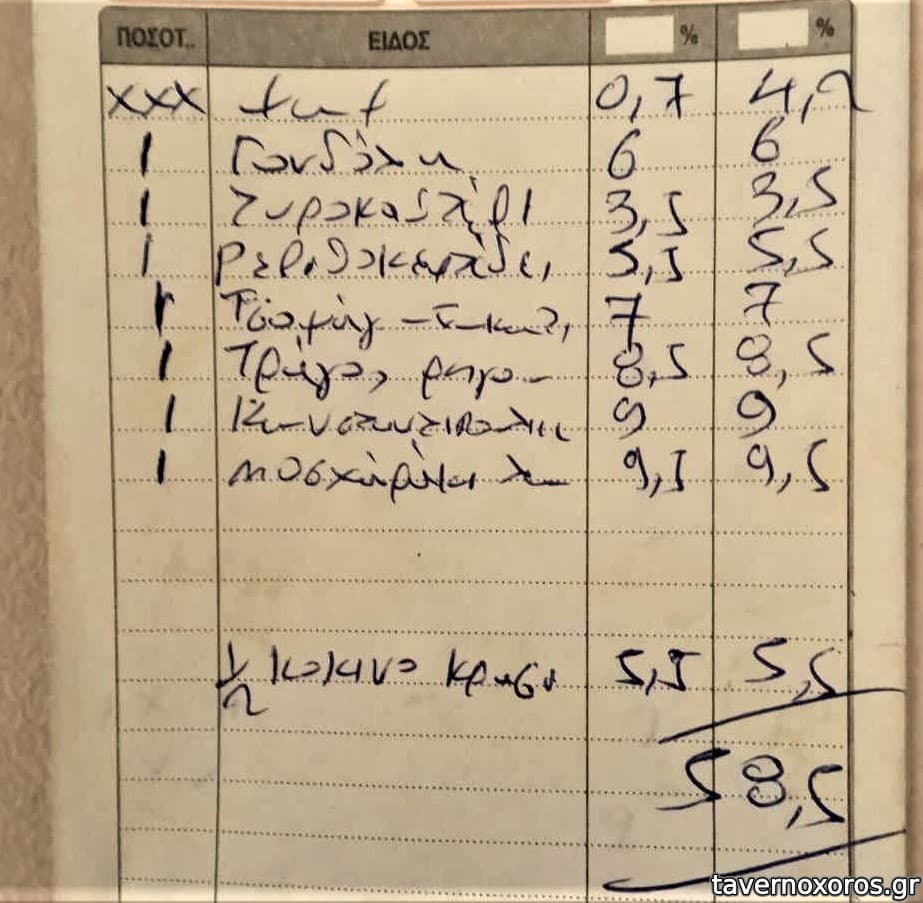 ΠΟΣΟΤ.. ΕΙΔΟΣ % %
xxx 0,7 4,2
1 Γονδόλα 6 6
1 Τυροκαυτερή 3,5 3,5
1 Ρεβιθοκεφτέδες 5,5 5,5
1 7 7
1 Τράγος ρηγα 8,5 8,5
1 Κωνσταντινοπολίτικη 9 9
1 μοσχαράκι λα 9,5 9,5
1/2 κοκινο κρασι 5,5 5,5
58,5
tavernoxoros.gr